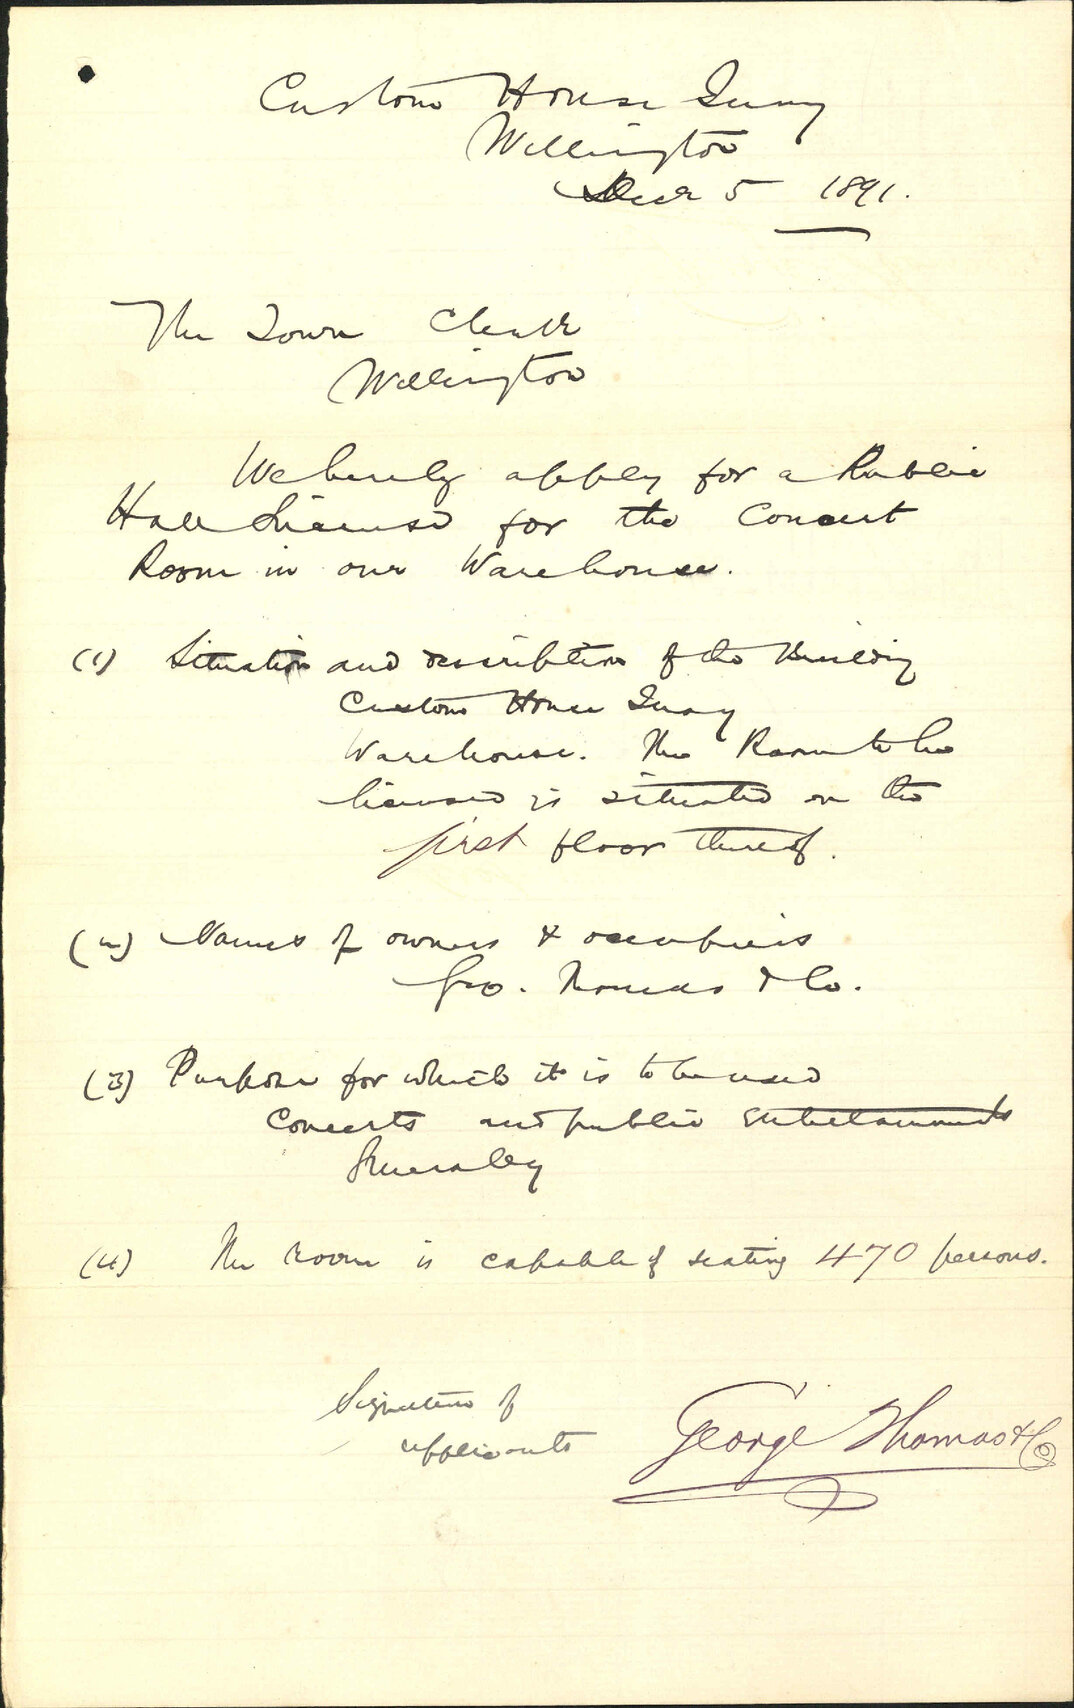 Custom House Quay
Wellington
Decr 5 1891.
The Town Clerk
Wellington
We hereby apply for a Public
Hall License for the Concert
Room in our Warehouse.
(1) Situation and description of the Building
Custom House Quay
Warehouse. The Room to be
licensed is situated on the
first floor thereof.
(2) Names of owners & occupiers
Geo. Thomas & Co.
(3) Purpose for which it is to be used
Concerts and public entertainments
generally
(4) The room is capable of seating 470 persons.
Signature of
applicants
George Thomas & Co